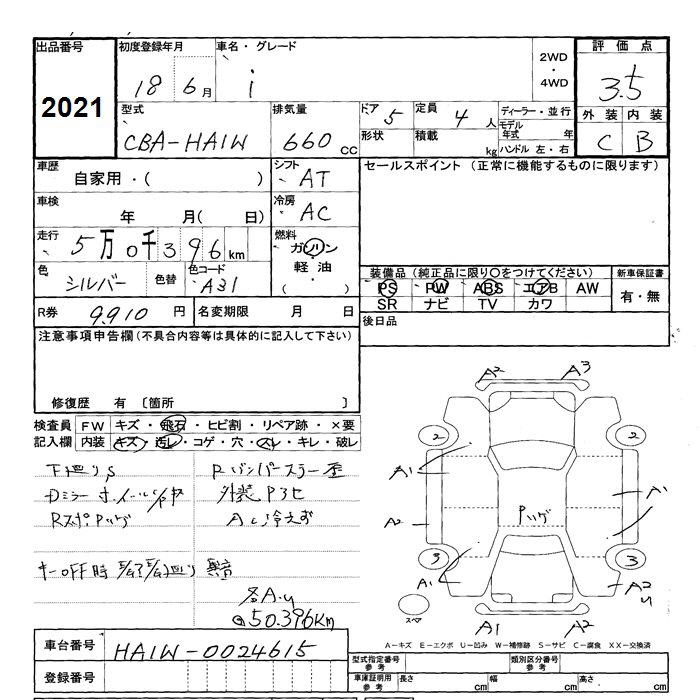 出品番号
2021
初度登録年月
18 6月
車名・グレード
i
2WD
・
4WD
評価点
3.5
外装 内装
C B
型式
CBA-HA1W
排気量
660 CC
ドア 5
形状
定員 4 人
積載 kg
ディーラー・並行
モデル年式 年
ハンドル 左・右
車歴
自家用・( )
シフト
AT
車検
年 月( 日)
冷房
AC
走行
5万0千396km
燃料
ガソリン
軽油
・( )
色
シルバー
色替
色コード
A31
セールスポイント (正常に機能するものに限ります)
装備品(純正品に限り○をつけてください)
PS PW ABS エアB AW
SR ナビ TV カワ
新車保証書
有・無
R券 9,910 円
名変期限 月 日
後日品
注意事項申告欄(不具合内容等は具体的に記入して下さい)
修復歴 有 〔箇所 〕
検査員記入欄
FW キズ・飛石・ヒビ割・リペア跡・×要
内装 キズ・汚レ・コゲ・穴・スレ・キレ・破レ
下廻りS
外装
キーOFF時
異音
50.396Km
A2 A3
2 2
A1 A1
A2
3 3
A1 A2
U
A1 A2
スペア
A-キズ E-エクボ U-凹み W-補修跡 S-サビ C-腐食 XX-交換済
車台番号
HA1W-0024615
登録番号
型式指定番号 参考
類別区分番号 参考
車庫証明用 参考
長さ cm 幅 cm 高さ cm